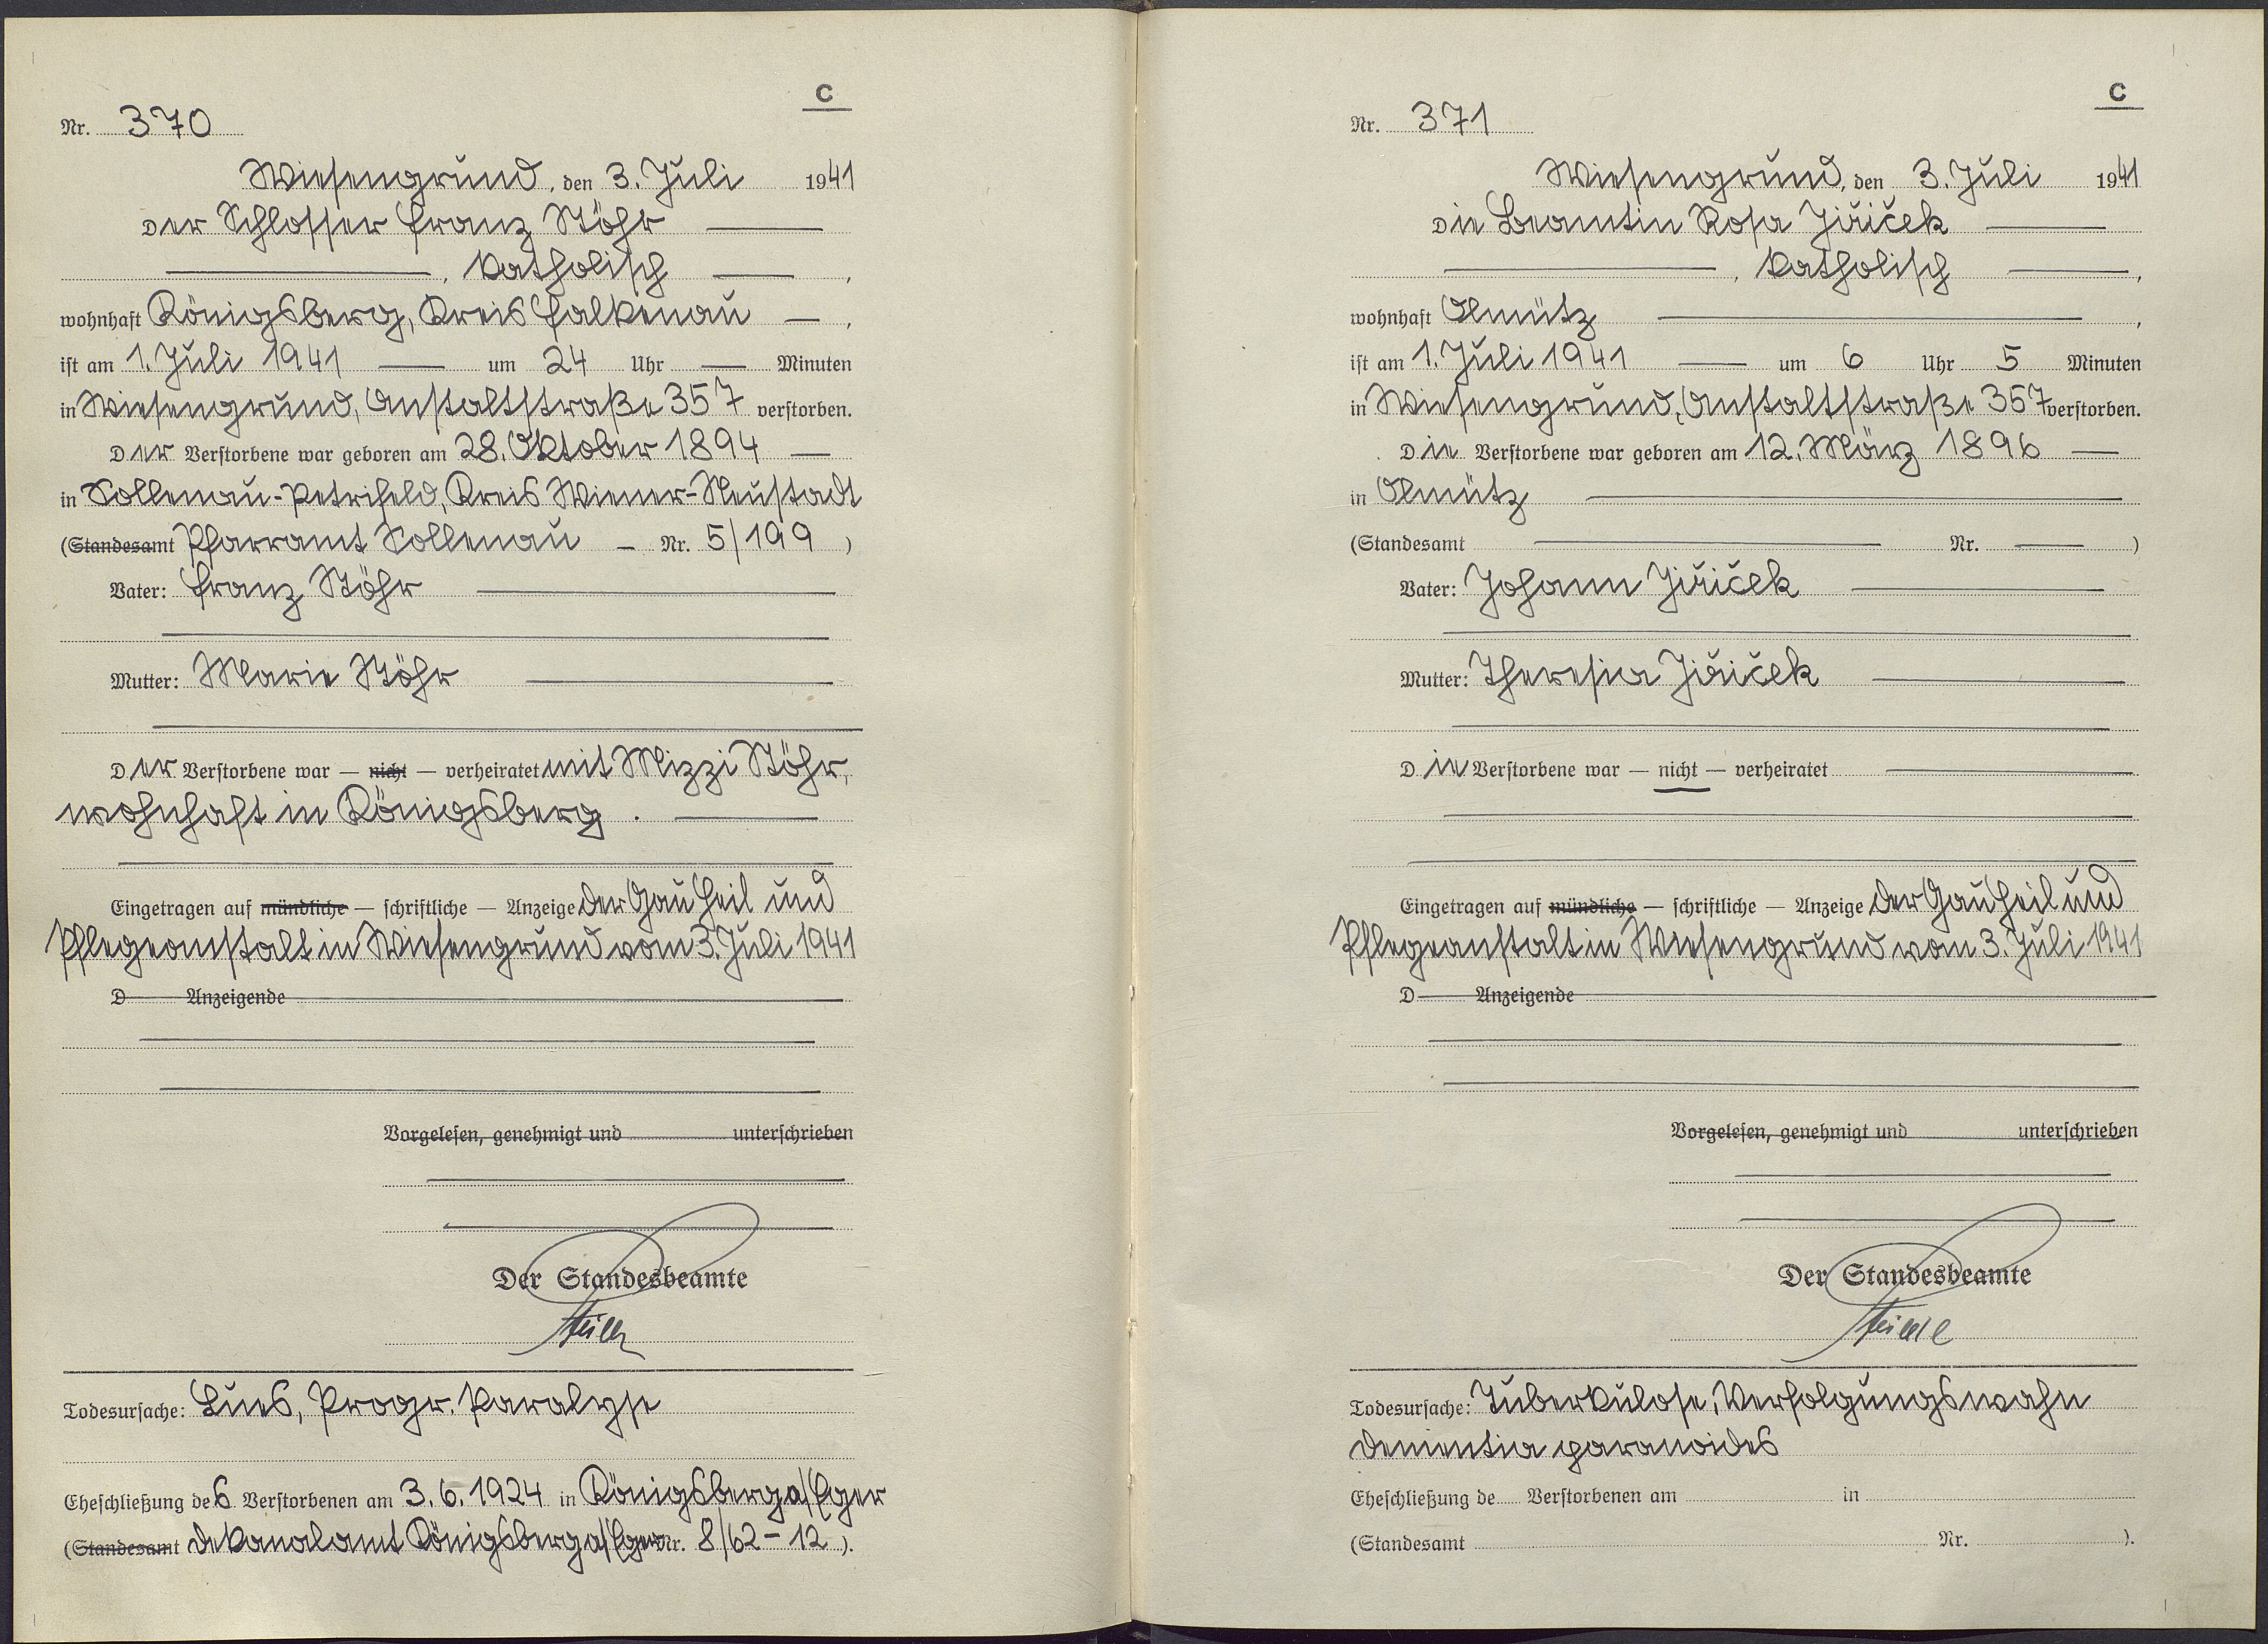 C
Nr. 370
Wiesengrund, den 3. Juli 1941
Der Schlosser Franz Stöhr
, katholisch ,
wohnhaft Königsberg, Kreis Falkenau ,
ist am 1. Juli 1941 um 24 Uhr Minuten
in Wiesengrund, Anstaltstraße 357 verstorben.
Der Verstorbene war geboren am 28. Oktober 1894
in Sollenau-Petrifeld, Kreis Wiener-Neustadt
(Standesamt Pfarramt Sollenau – Nr. 5/199 )
Vater: Franz Stöhr
Mutter: Marie Stöhr
Der Verstorbene war — nicht — verheiratet mit Mizzi Stöhr,
wohnhaft in Königsberg.
Eingetragen auf mündliche — schriftliche — Anzeige der Gau Heil und
Pflegeanstalt in Wiesengrund vom 3. Juli 1941
D Anzeigende
Vorgelesen, genehmigt und unterschrieben
Der Standesbeamte
Todesursache: Lues, Progr. Paralyse
Eheschließung des Verstorbenen am 3. 6. 1924 in Königsberg a/Eger
(Standesamt Dekanalamt Königsberg a/Eger Nr. 8/62 – 12 ).
C
Nr. 371
Wiesengrund, den 3. Juli 1941
Die Beamtin Rosa Jiříček
, katholisch ,
wohnhaft Olmütz ,
ist am 1. Juli 1941 um 6 Uhr 5 Minuten
in Wiesengrund, Anstaltstraße 357 verstorben.
Die Verstorbene war geboren am 12. März 1896
in Olmütz
(Standesamt Nr. )
Vater: Johann Jiříček
Mutter: Theresia Jiříček
Die Verstorbene war — nicht — verheiratet
Eingetragen auf mündliche — schriftliche — Anzeige der Gau Heil und
Pflegeanstalt in Wiesengrund vom 3. Juli 1941
D Anzeigende
Vorgelesen, genehmigt und unterschrieben
Der Standesbeamte
Todesursache: Tuberkulose, Verfolgungswahn
dementia paranoides
Eheschließung de Verstorbenen am in
(Standesamt Nr. ).